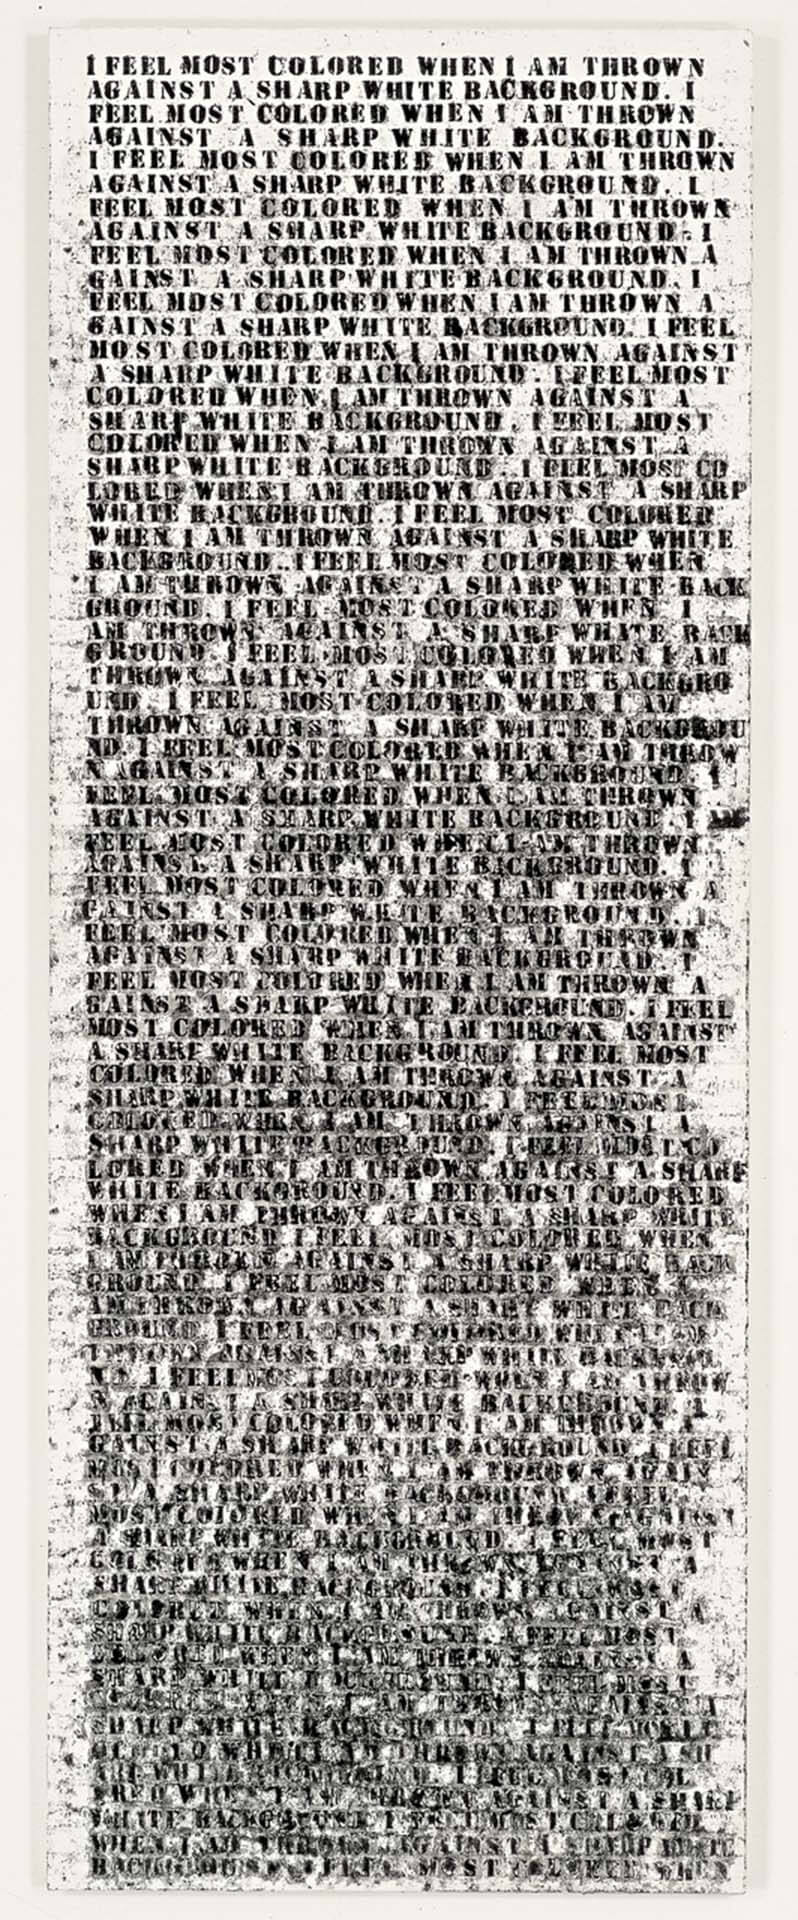 I FEEL MOST COLORED WHEN I AM THROWN
AGAINST A SHARP WHITE BACKGROUND. I
FEEL MOST COLORED WHEN I AM THROWN
AGAINST A SHARP WHITE BACKGROUND.
I FEEL MOST COLORED WHEN I AM THROWN
AGAINST A SHARP WHITE BACKGROUND. I
FEEL MOST COLORED WHEN I AM THROWN
AGAINST A SHARP WHITE BACKGROUND. I
FEEL MOST COLORED WHEN I AM THROWN A
GAINST A SHARP WHITE BACKGROUND. I
FEEL MOST COLORED WHEN I AM THROWN A
GAINST A SHARP WHITE BACKGROUND. I FEEL
MOST COLORED WHEN I AM THROWN AGAINST
A SHARP WHITE BACKGROUND. I FEEL MOST
COLORED WHEN I AM THROWN AGAINST A
SHARP WHITE BACKGROUND. I FEEL MOST
COLORED WHEN I AM THROWN AGAINST A
SHARP WHITE BACKGROUND. I FEEL MOST CO
LORED WHEN I AM THROWN AGAINST A SHARP
WHITE BACKGROUND. I FEEL MOST COLORED
WHEN I AM THROWN AGAINST A SHARP WHITE
BACKGROUND. I FEEL MOST COLORED WHEN
I AM THROWN AGAINST A SHARP WHITE BACK
GROUND. I FEEL MOST COLORED WHEN I
AM THROWN AGAINST A SHARP WHITE BACK
GROUND. I FEEL MOST COLORED WHEN I AM
THROWN AGAINST A SHARP WHITE BACKGRO
UND. I FEEL MOST COLORED WHEN I AM
THROWN AGAINST A SHARP WHITE BACKGROU
ND. I FEEL MOST COLORED WHEN I AM THROW
N AGAINST A SHARP WHITE BACKGROUND. I
FEEL MOST COLORED WHEN I AM THROWN
AGAINST A SHARP WHITE BACKGROUND. I
FEEL MOST COLORED WHEN I AM THROWN
AGAINST A SHARP WHITE BACKGROUND. I
FEEL MOST COLORED WHEN I AM THROWN A
GAINST A SHARP WHITE BACKGROUND. I
FEEL MOST COLORED WHEN I AM THROWN
AGAINST A SHARP WHITE BACKGROUND. I
FEEL MOST COLORED WHEN I AM THROWN A
GAINST A SHARP WHITE BACKGROUND. I FEEL
MOST COLORED WHEN I AM THROWN AGAINST
A SHARP WHITE BACKGROUND. I FEEL MOST
COLORED WHEN I AM THROWN AGAINST A
SHARP WHITE BACKGROUND. I FEEL MOST
COLORED WHEN I AM THROWN AGAINST A
SHARP WHITE BACKGROUND. I FEEL MOST CO
LORED WHEN I AM THROWN AGAINST A SHARP
WHITE BACKGROUND. I FEEL MOST COLORED
WHEN I AM THROWN AGAINST A SHARP WHITE
BACKGROUND I FEEL MOST COLORED WHEN
I AM THROWN AGAINST A SHARP WHITE BACK
GROUND. I FEEL MOST COLORED WHEN I
AM THROWN AGAINST A SHARP WHITE BACK
GROUND I FEEL MOST COLORED WHEN I AM
THROWN AGAINST A SHARP WHITE
I FEEL MOST COLORED WHEN I AM THROW
N AGAINST A SHARP WHITE BACKGROUND. I
FEEL MOST COLORED WHEN I AM THROWN A
GAINST A SHARP WHITE BACKGROUND. I FEEL
MOST COLORED WHEN I AM THROWN AGAIN
ST A SHARP WHITE BACKGROUND I FEEL
MOST COLORED WHEN I AM AGAINST
A SHARP WHITE BACKGROUND. I FEEL MOST
COLORED WHEN I AM THROWN AGAINST A
SHARP WHITE BACKGROUND. I FEEL MOST
COLORED WHEN I AM THROWN AGAINST A
SHARP WHITE BACKGROUND. I FEEL MOST
WHEN I AM THROWN AGAINST A
SHARP WHITE I FEEL MOST
I AM A
SHARP WHITE BACKGROUND. I FEEL
THROWN AGAINST A SH
WHITE I FEEL MOST COL
AGAINST A SHARP
WHITE BACKGROUND I FEEL MOST
WHEN I AM THROWN AGAINST A SHARP WHITE
BACKGROUND. I FEEL MOST COLORED WHEN